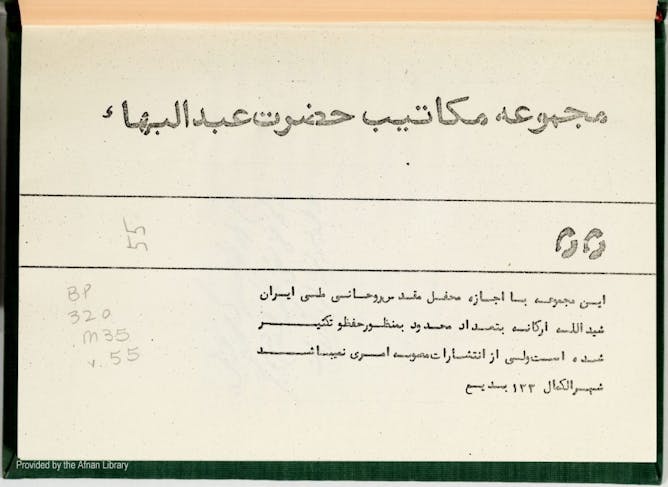 مجموعه مکاتیب حضرت عبدالبهاء
۵۵
55
این مجموعه با اجازه محفل مقدس روحانی ملی ایران
شیدالله ارکانه بتعداد محدود بمنظور حفظ و تکثیر
شده است ولی از انتشارات مصوبه امری نمیباشد
شهرالکمال ۱۳۳ بدیع
BP
320
.M35
v. 55
Provided by the Afnan Library